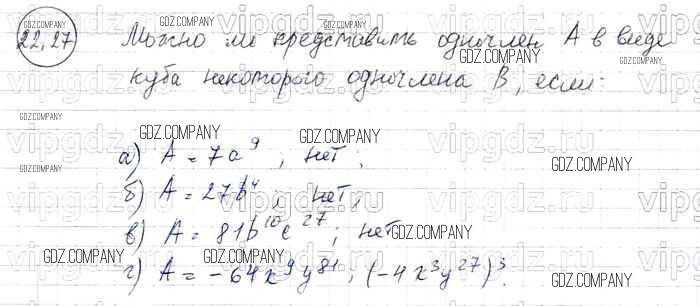 22.27 Можно ли представить одночлен A в виде
куба некоторого одночлена B, если:
а) A = 7a⁹; нет;
б) A = 27b⁴; нет;
в) A = 81b¹⁰c²⁷; нет
г) A = -64x⁹y⁸¹; (-4x³y²⁷)³.
GDZ.COMPANY
vipgdz.ru